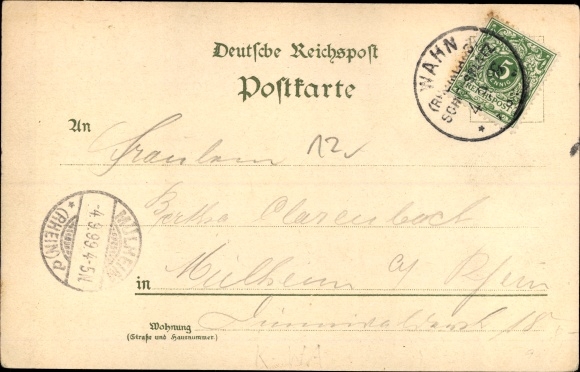 Deutsche Reichspost
Postkarte
WAHN
5
PFENNIG
REICHSPOST
An
Fräulein
12
Bertha Clarenbach
MÜLHEIM
(RHEIN) a
4.9.99 4-5N
in
Mülheim a/ Rhein
18
Wohnung
(Straße und Hausnummer.)